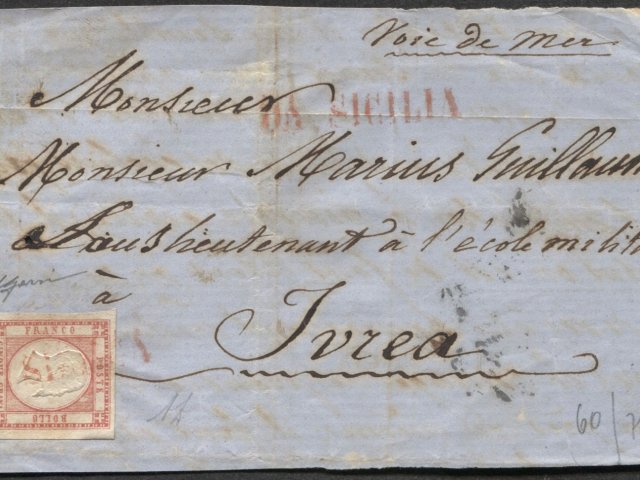 Voie de mer
Monsieur
DA SICILIA
Monsieur Marius Guillaum
Sous lieutenant à l'école milit
à
Ivrea
FRANCO
POSTE
BOLLO
60/